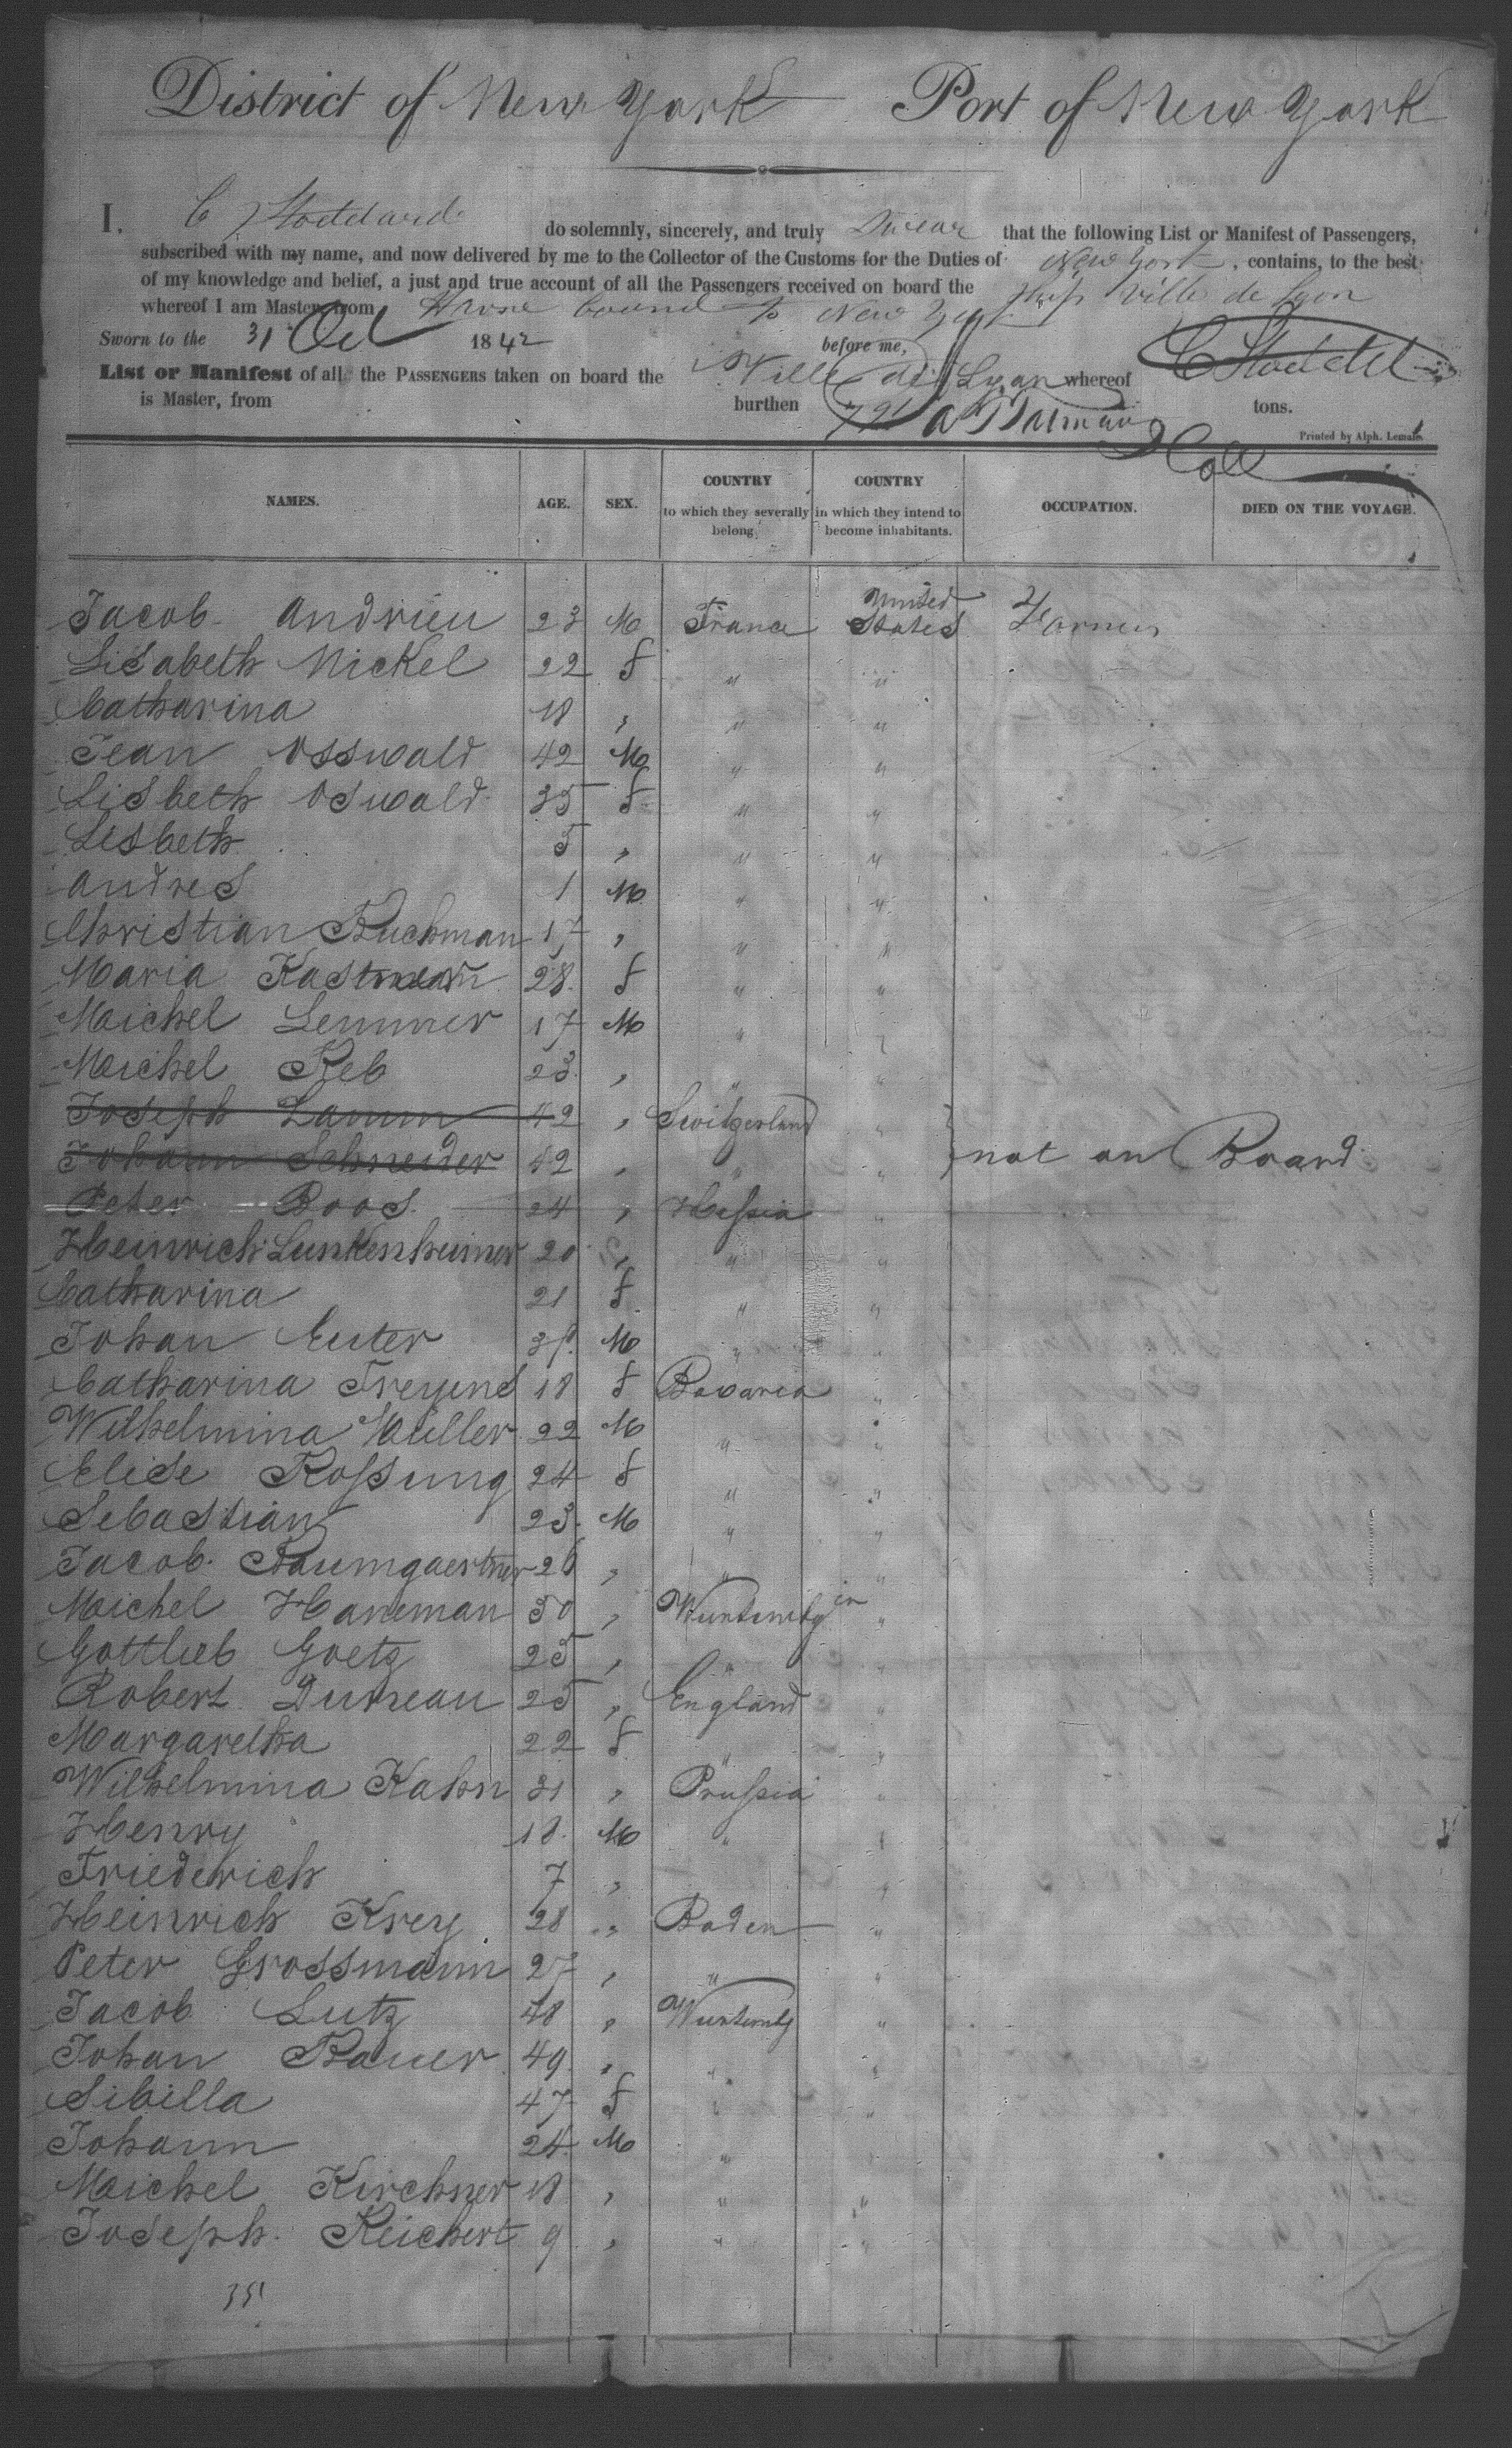 District of New York Port of New York
I. C Stoddard do solemnly, sincerely, and truly Swear that the following List or Manifest of Passengers,
subscribed with my name, and now delivered by me to the Collector of the Customs for the Duties of New York, contains, to the best
of my knowledge and belief, a just and true account of all the Passengers received on board the Ship Ville de Lyon
whereof I am Master, from Havre bound to New York
Sworn to the 31 Oct 1842 before me, C Stoddard
List or Manifest of all the PASSENGERS taken on board the Ville de Lyon whereof
is Master, from burthen 791 tons.
Coll
Printed by Alph. Lemale.
NAMES. AGE. SEX. COUNTRY to which they severally belong. COUNTRY in which they intend to become inhabitants. OCCUPATION. DIED ON THE VOYAGE.
Jacob Andrieu 23 M France United States Farmer
Lisabeth Nickel 22 f " "
Catharina 18 , " "
Jean Osswald 42 M " "
Lisbeth Oswald 35 f " "
Lisbeth 5 , " "
Andres 1 M " "
Christian Buchman 17 , " "
Maria 28 f " "
Michel Lemmer 17 M " "
Michel Reb 23 , " "
Joseph Lamm 42 , Switzerland "
Johann Schneider 42 , " " } not on Board
Peter Boos 24 , Hessia "
Heinrich Lunkenheimer 20 , " "
Catharina 21 f " "
Johan Euter M " "
Catharina Freyend 18 f Bavaria "
Wilhelmina Müller 22 M " "
Elise Rossung 24 f " "
Sebastian 23 M " "
Jacob Baumgaertner 26 , " "
Michel Haneman 30 , Wurtemby in "
Gottlieb Goetz 25 , " "
Robert Duneau 25 , England "
Margaretha 22 f "
Wilhelmina Kahn 31 , Prussia "
Henry 18 M " "
Friederich 7 , "
Heinrich Krey 28 , Baden "
Peter Grossmann 27 , " "
Jacob Lutz 48 , Wurtemby "
Johan Bauer 49 , " "
Sibilla 47 f " "
Johann 24 M "
Michel Kirchner 18 , " "
Joseph Reichert 9 , " "
35